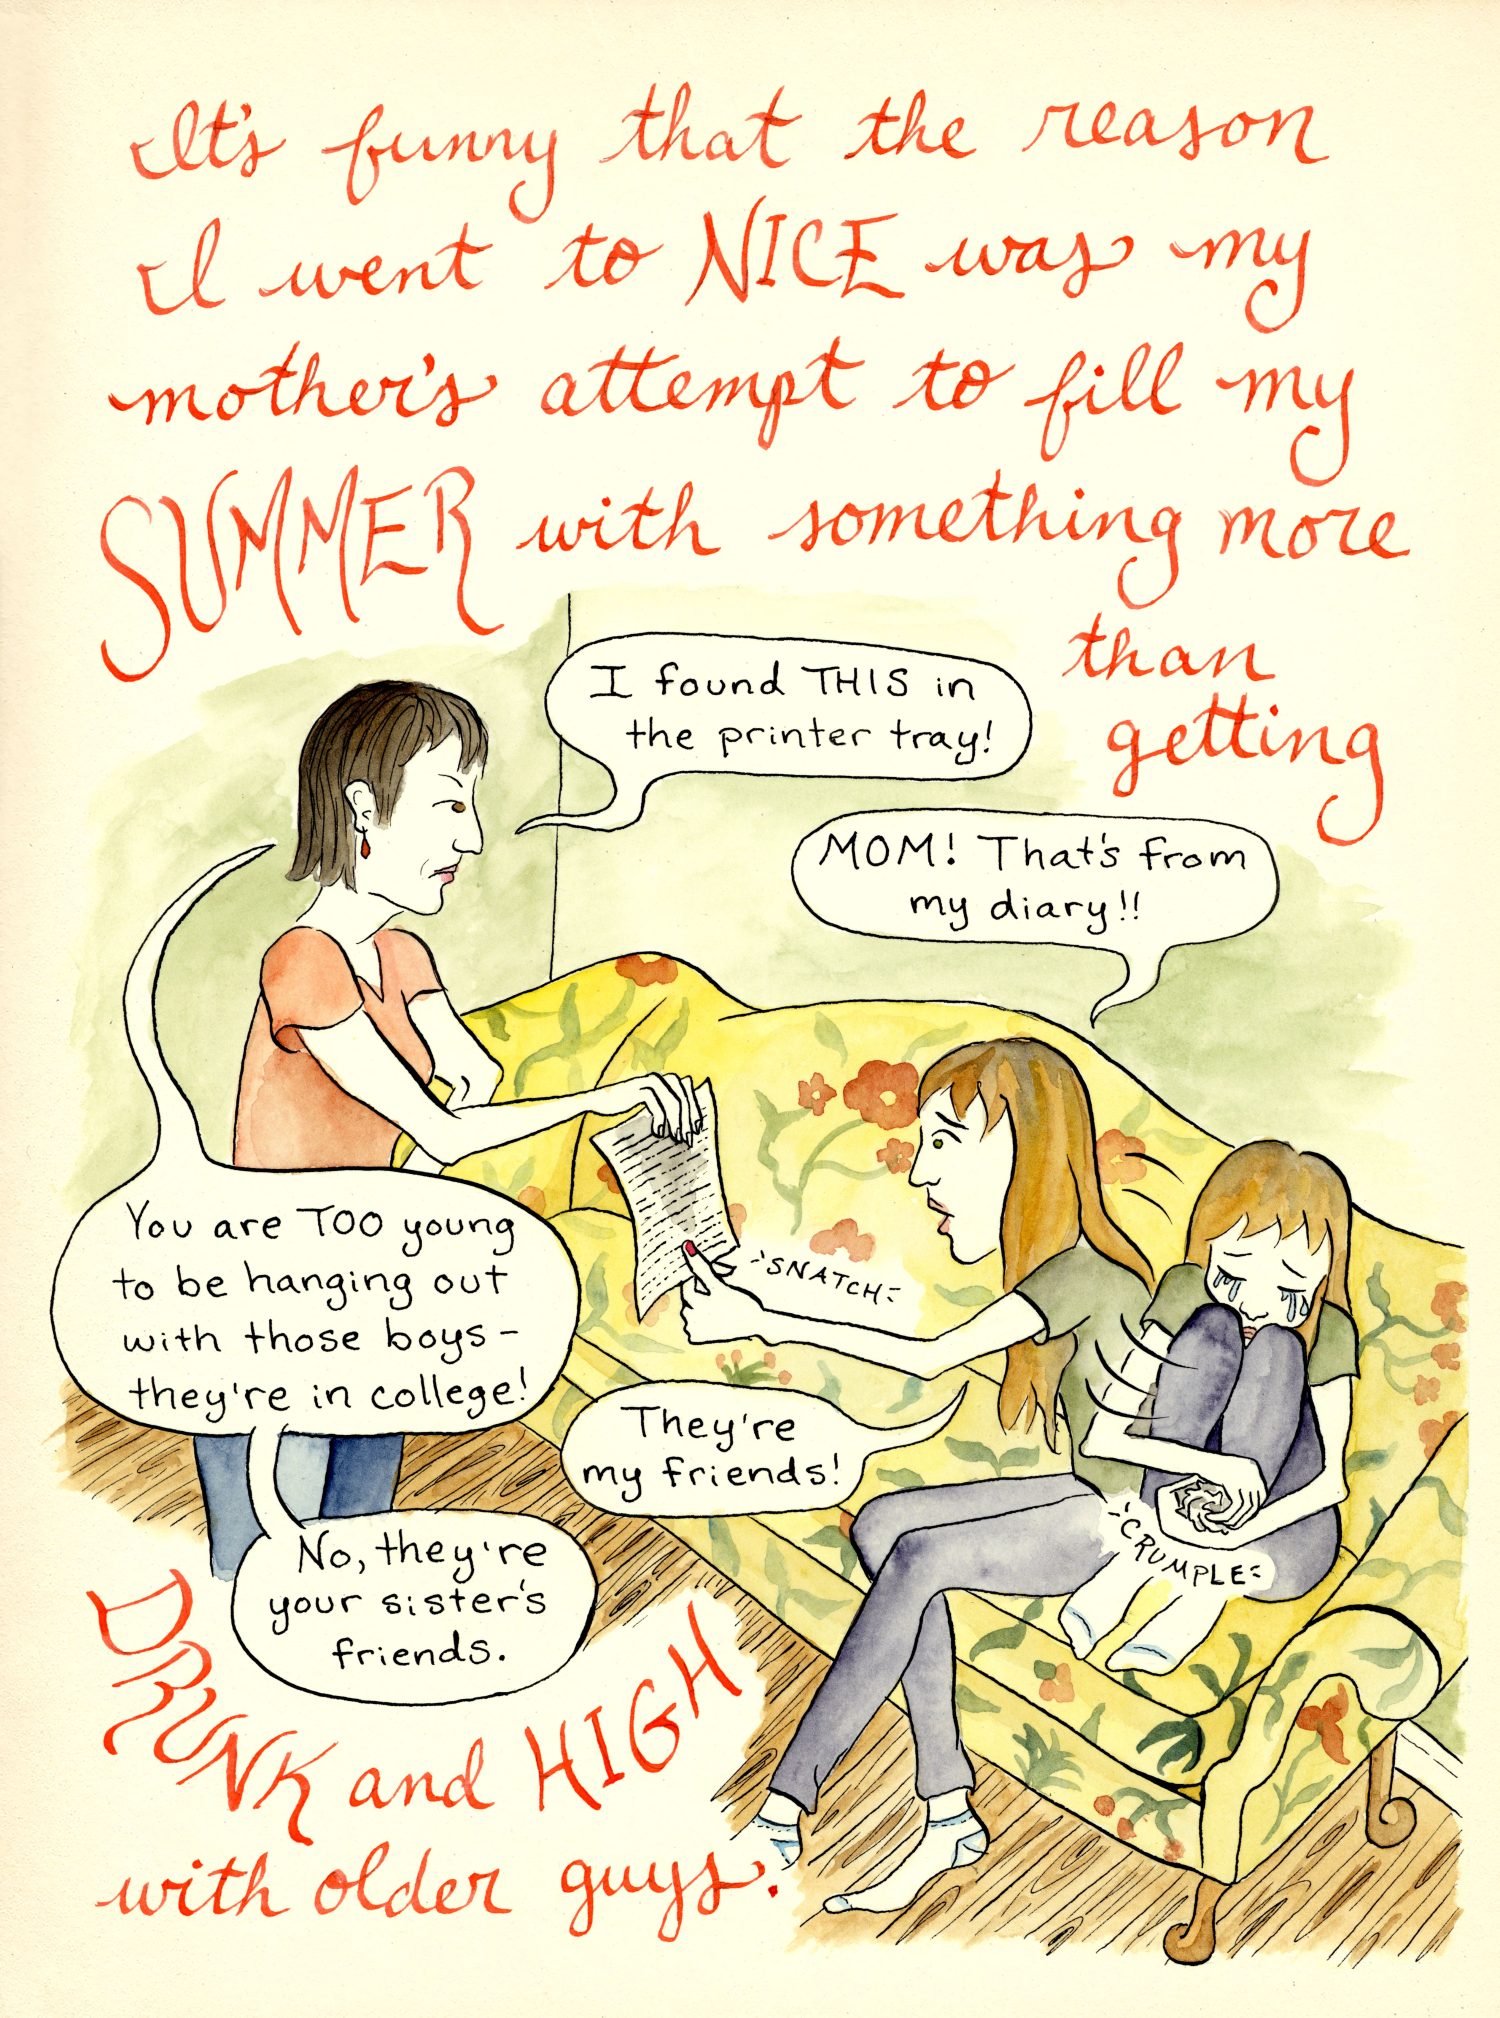 It's funny that the reason
I went to NICE was my
mother's attempt to fill my
SUMMER with something more
than
getting
I found THIS in
the printer tray!
MOM! That's from
my diary!!
You are TOO young
to be hanging out
with those boys -
they're in college!
-SNATCH-
They're
my friends!
No, they're
your sister's
friends.
-CRUMPLE-
DRUNK and HIGH
with older guys.